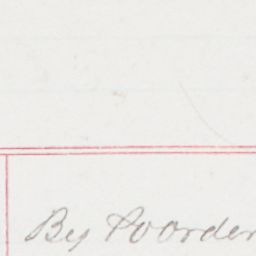 By Poorder